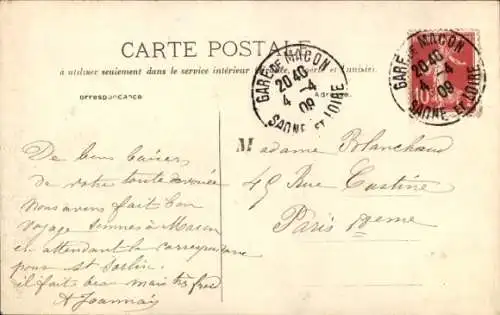 CARTE POSTALE
à utiliser seulement dans le service intérieur
Correspondance
Adresse
GARE DE MACON
20 40
4 -4
09
SAONE ET LOIRE
GARE DE MACON
20 40
4 -4
09
SAONE ET LOIRE
10
De bons baisers
de votre toute dévouée
Nous avons fait bon
voyage sommes à Macon
en attendant la correspondance
pour St Sorlin.
il fait beau mais très froid
A Joannais
Madame Blanchard
45 Rue Custine
Paris 18eme